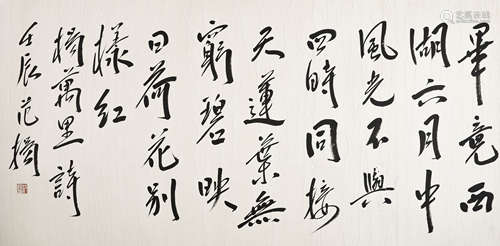 畢竟西
湖六月中
風光不與
四時同接
天蓮葉無
窮碧映
日荷花别
樣紅
楊萬里詩
壬辰范揚